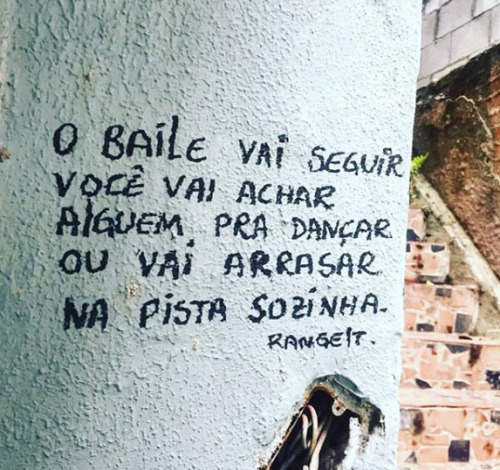 O BAILE VAI SEGUIR
VOCÊ VAI ACHAR
ALGUEM PRA DANÇAR
OU VAI ARRASAR
NA PISTA SOZINHA.
RANGEIT.